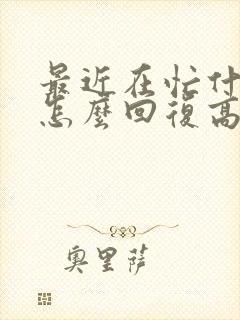 最近在忙什
怎麼回復高
奧里薩